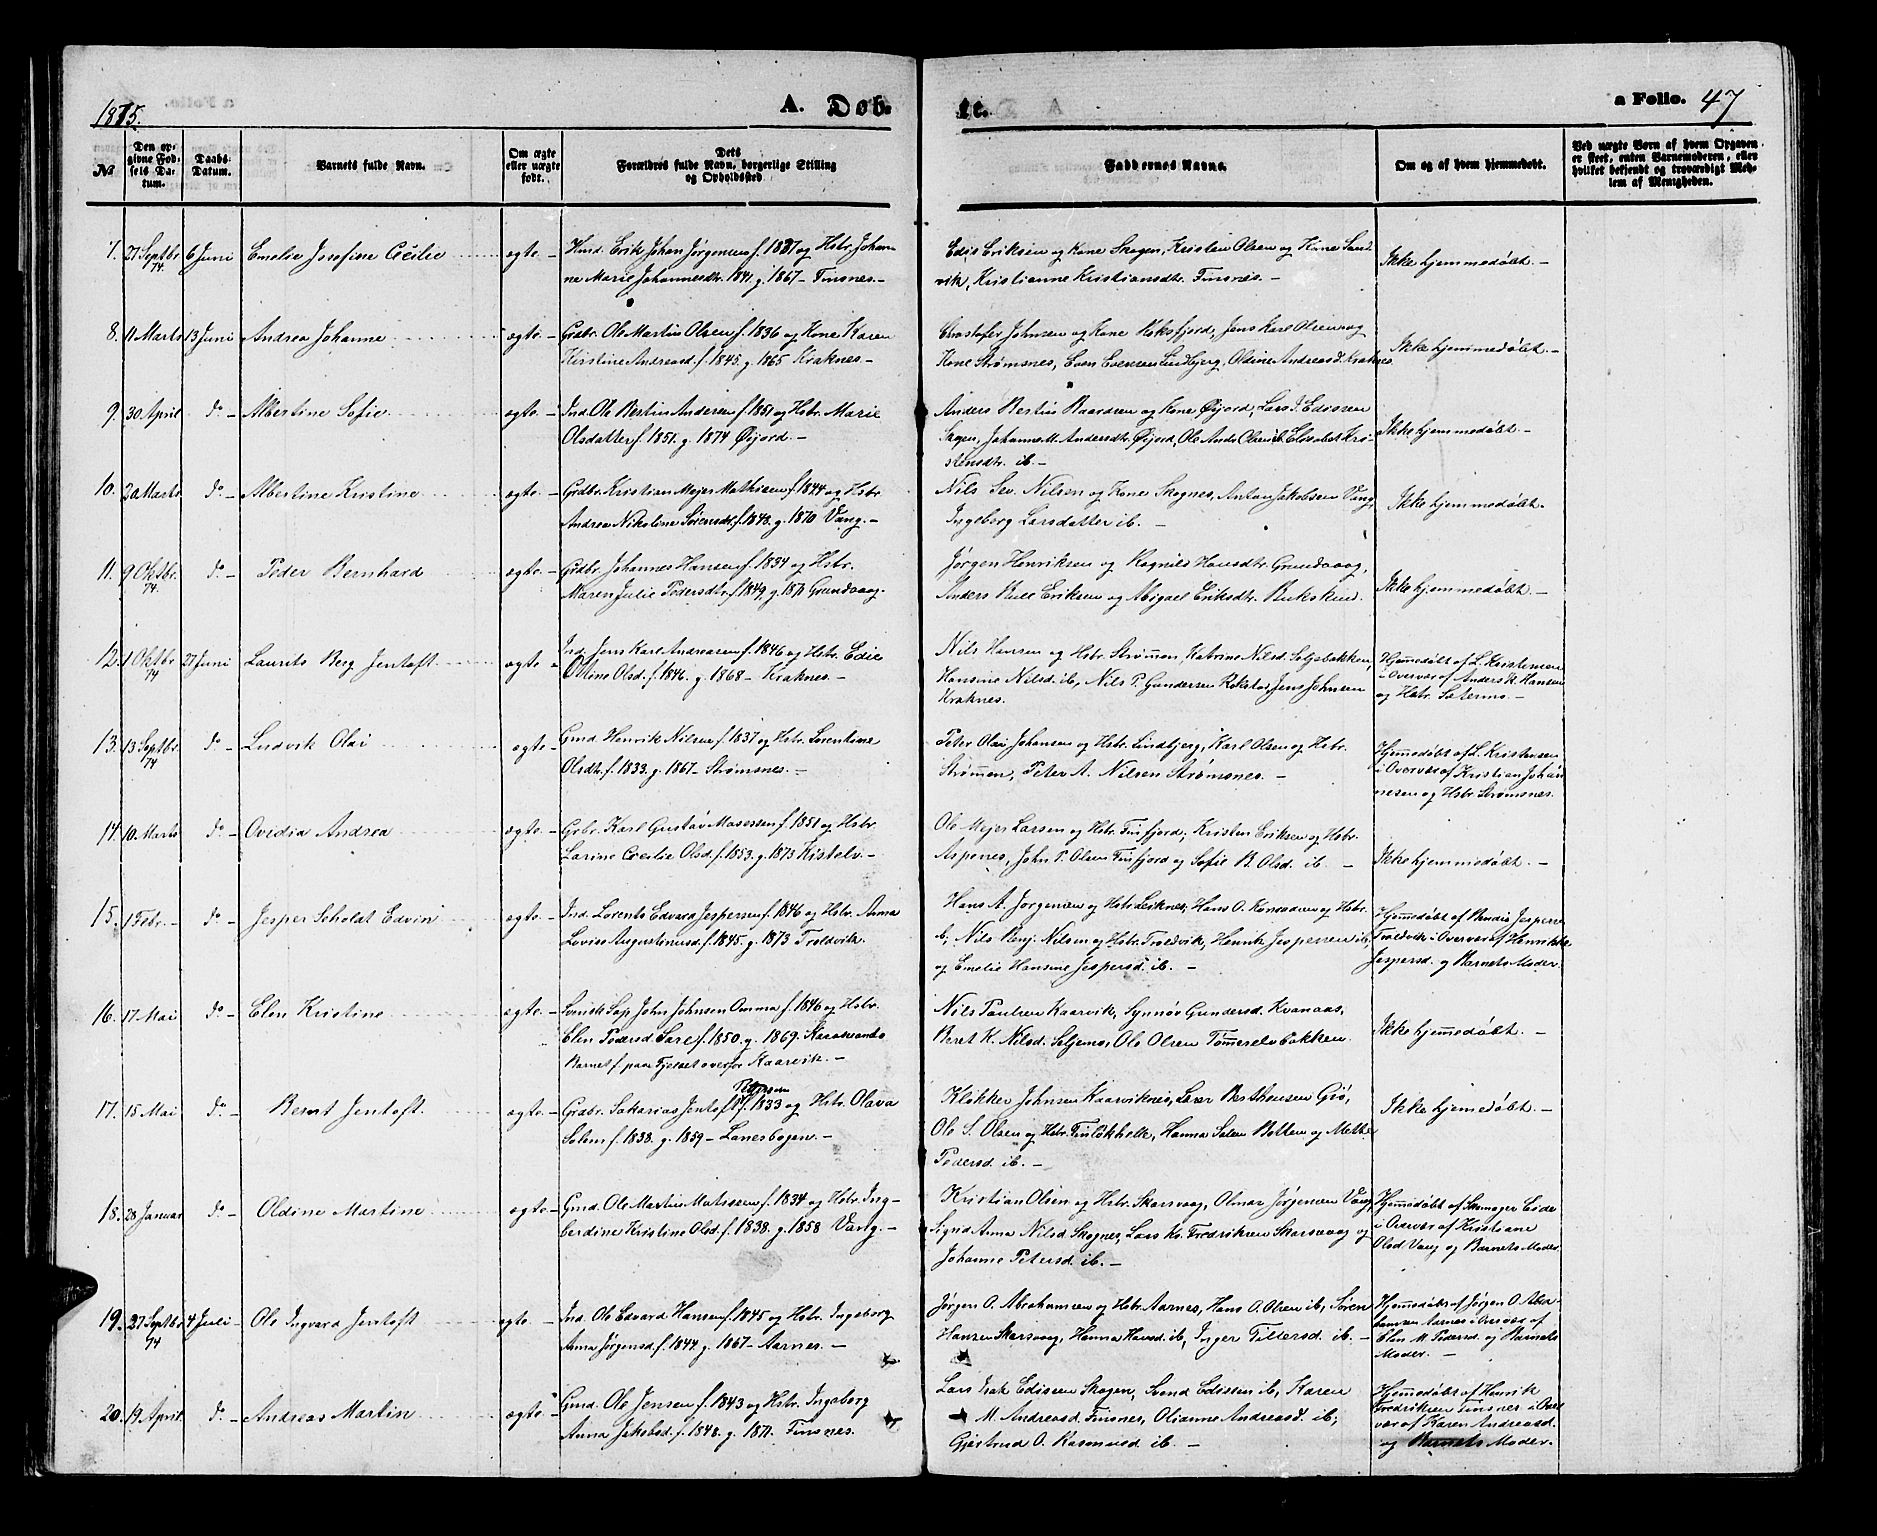 1875.
A. Døb-
te.
a Folio. 47
№
Den op-
givne Fød-
sels Da-
tum.
Daabs-
Datum.
Barnets fulde Navn.
Om ægte
eller uægte
født.
Dets
Forældres fulde Navn, borgerlige Stilling
og Opholdssted
Faddernes Navne.
Om og af hvem hjemmedøbt.
Ved uægte Børn af hvem Opgaven
er skeet, enten Barnemoderen, eller
hvilket bekjendt og troværdigt Med-
lem af Menigheden.
7. 27 Septbr 74. 6 Juni Emelie Josefine Cecilie ægte.
Erik Johan Jørgensen f. 1837 og Hstr. Johan-
ne Marie Johannesdtr. 1841. g. 1867 – Finsnes. –
Edis Eriksen og Kone Skogen, Kristen Olsen og Kone Sand-
vik, Kristianne Kristiansdtr. Finsnes. –
Ikke hjemmedøbt. –
8. 11 Marts 13 Juni Andrea Johanne ægte. –
Grdbr. Ole Martin Olsen f. 1836 og Kone Karen
Kirstine Andreasd. f. 1845. g. 1865 Kraknes –
Christofer Johnsen og Kone Roksfjord, Jens Karl Olsen og
Kone Strømsnes, Even Evensen Lindbjerg, Oldine Andreasd. Kraknes
Ikke hjemmedøbt. –
9. 30 April do – Albertine Sofie ægte. –
Ind. Ole Bertin Andersen f. 1851 og Hstr. Marie
Olsdatter f. 1851. g. 1874 Øijord. –
Anders Bertin Baardsen og Kone Øijord, Lars I. Edissen
Skogen, Johanna M. Andersdtr. Øijord, Ole And. Olsen ib. Elisabet Kri-
stensdtr. ib. –
Ikke hjemmedøbt. –
10. 20 Marts do – Albertine Kristine ægte –
Grdbr. Kristian Mejer Mathisen f. 1844 og Hstr.
Andrea Nikoline Sørensdt. f. 1848. g. 1870 Vang. –
Nils Sev. Nilsen og Kone Skognes, Anton Jakobsen Vang,
Ingeborg Larsdatter ib. –
Ikke hjemmedøbt.
11. 9 Oktbr. 74. do – Peder Bernhard ægte. –
Grdbr. Johannes Hansen f. 1834 og Hstr.
Maren Julie Pedersdtr. f. 1849, g. 1871 Grundvaag.
Jørgen Henriksen og Ragnild Hansdtr. Grundvaag,
Anders Bull Eriksen og Abigael Eriksdtr. Bukskin.
Ikke hjemmedøbt. –
12. 1 Oktbr 74 27 Juni Laurits Berg Jentoft ægte –
Ind. Jens Karl Andreasen f. 1846 og Hstr. Edie
Oline Olsd. f. 1846. g. 1868 – Kraknes. –
Nils Hansen og Hstr. Strømmen, Katrine Nilsd. Seljebakken,
Hansine Nilsd. ib, Nils P. Gundersen Rokstad, Jens Johnsen
Kraknes.
Hjemmedøbt af L. Kristensen
i Overvær af Anders R. Hansen
og Hstr. Setermo. –
13. 13 Septbr. 74 do – Ludvik Olai ægte –
Gmd. Henrik Nilsen f. 1837 og Hstr. Lorentine
Olsdtr. f. 1833. g. 1867 – Strømsnes. –
Peter Olai Johansen og Hstr. Lindbjerg, Karl Olsen og Hstr.
Strømmen, Peter A. Nilsen Strømsnes. –
Hjemmedøbt af L. Kristensen
i Overvær af Kristian Johan-
nesen og Hstr. Strømsnes.
14. 10. Marts do – Ovidia Andrea ægte. –
Grbr. Karl Gustav Mosessen f. 1851 og Hstr.
Larine Cecilie Olsd. f. 1853. g. 1873 Kistelv. –
Ole Mejer Larsen og Hstr. Finfjord, Kristen Eriksen og Hstr.
Aspenes, John P. Olsen Finfjord og Sofie B. Olsd. ib. –
Ikke hjemmedøbt. –
15. 1 Febr. – do – Jesper Scholdt Edvin ægte –
Ind. Lorents Edvard Jespersen f. 1846 og Hstr. Anna
Lovise Augustinusd. f. 1845. g. 1873 Troldvik.
Hans A. Jørgensen og Hstr. Leiknes, Hans O. Konradsen og Hstr.
ib, Nils Benj. Nilsen og Hstr. Troldvik, Henrik Jespersen ib,
og Emelie Hansine Jespersd. ib. –
Hjemmedøbt af Jespersen
Troldvik i Overvær af Henrikke
Jespersd. og Barnets Moder.
16. 17 Mai do – Elen Kristine ægte –
Svensk Lap John Johnsen Omma f. 1846 og Hstr.
Elen Pedersd. Sare f. 1850. g. 1869. Karesuando
Barnet f. paa Fjeldet overfor Kaarvik. –
Nils Paulsen Kaarvik, Synnøv Gundersd. Kvanaas,
Beret K. Nilsd. Seljemo, Ole Olsen Tømmerelvbakken.
Ikke hjemmedøbt. –
17. 15 Mai do – Bernt Jentoft ægte –
Pedersen
Grdbr. Sakarias Jentoft f. 1833 og Hstr. Olava
Solem f. 1838. g. 1859 – Lanesbogen. –
Klokker Johnsen Kaarviknes, Berthensen Giø,
Ole S. Olsen og Hstr. Finlikhelle, Hanna Solem Botten og Mette
Pedersd. ib. –
Ikke hjemedøbt. –
18. 28 Januar do – Oldine Martine ægte –
Gmd. Ole Martin Matissen f. 1834 og Hstr. Ing-
berdine Kristine Olsd. f. 1838. g. 1858 Vang. –
Kristian Olsen og Hstr. Skarsvaag, Olinar Jørgensen Vang,
Signe Anna Nilsd. Skognes, Lars Kr. Fredriksen Skarsvaag og
Johanne Petersd. ib. –
Hjemmedøbt af Eide
i Overvær af Kristiane
Olsd Vang og Barnets Moder.
19. 27 Septbr 74 4 Juli – Ole Ingvard Jentoft ægte. –
Ind. Ole Edvard Hansen f. 1845 og Hstr. Ingeborg
Anna Jørgensd. f. 1844. g. 1867 – Aarnes. –
Jørgen O. Abrahamsen og Hstr. Aarnes, Hans O. Olsen ib, Søren
Hansen Skarsvaag, Hanna Hansd. ib, Inger Pedersd. ib. –
Hjemmedøbt af Jørgen O. Abra-
hamsen Aarnes i Overvær af
Elen M. Pedersd. og Barnets
Moder. –
20. 19. April do – Andreas Martin ægte –
Gmd. Ole Jensen f. 1843 og Hstr. Ingeborg
Anna Jakobsd. f. 1848. g. 1871. Finsnes.
Lars Isak Edissen Skogen, Svend Edissen ib, Karen
M. Andreasd. Finsnes, Olianne Andreasd. ib;
Gjertrud O. Rasmusd. ib. –
Hjemmedøbt af Henrik
Fredriksen Finsnes i Over-
vær af Karen Andreasd.
og Barnets Moder.